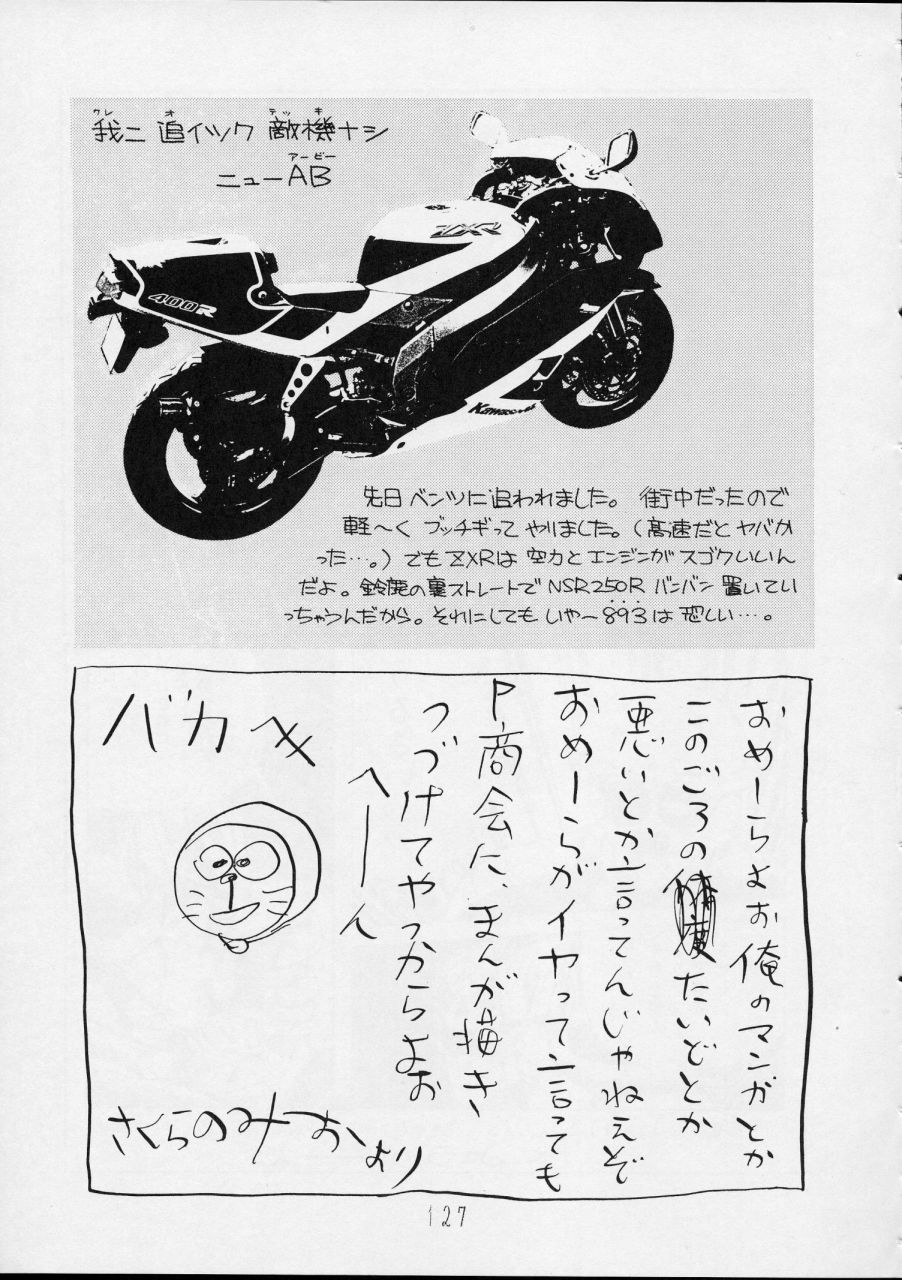 我ニ 追イツク 敵機ナシ
ワレ オ テッキ
ニューAB
アービー
ZXR
400R
Kawasaki
先日ベンツに追われました。 街中だったので
軽〜く ブッチギって やりました。(高速だと ヤバか
った…。)でも ZXRは 空力と エンジンが スゴクいいん
だよ。鈴鹿の裏ストレートで NSR250R バンバン 置いてい
っちゃうんだから。それにしても いやー893は 恐しい…。
おめーらよお俺のマンガとか
このごろの たいどとか
悪いとか言ってんじゃねえぞ
おめーらがイヤって言っても
P.商会に、まんが描き
つづけてやっからよお
へーん
バカメ
さくらのみおより
127